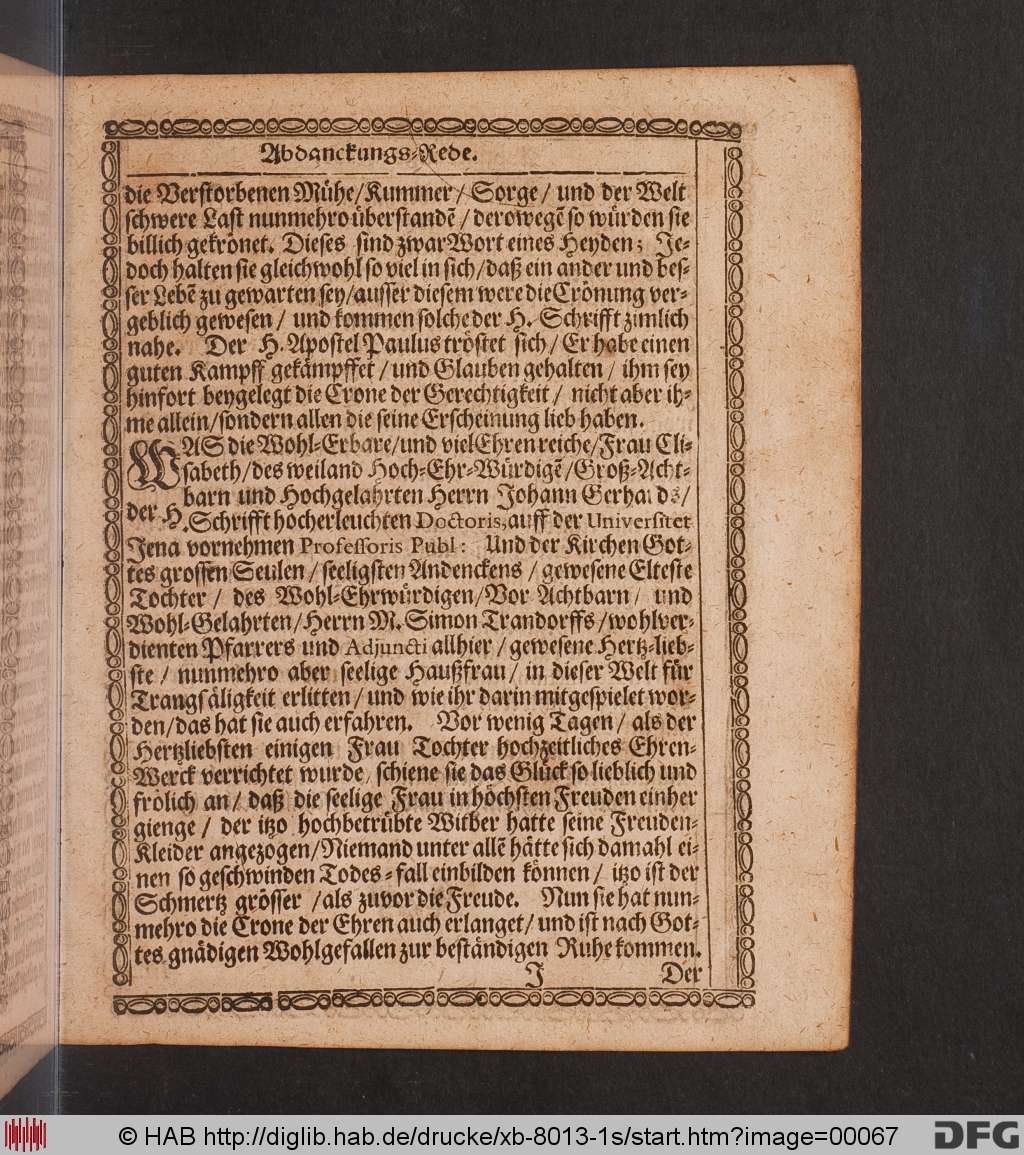 Abdanckungs-Rede.
die Verstorbenen Mühe/Kummer/Sorge/ und der Welt
schwere Last nunmehro überstandẽ/ derowegẽ so würden sie
billich gekrönet. Dieses sind zwar Wort eines Heyden; Je-
doch halten sie gleichwohl so viel in sich/daß ein ander und bes-
ser Lebẽ zu gewarten sey/ausser diesem were die Crönung ver-
geblich gewesen/ und kommen solche der H. Schrifft zimlich
nahe. Der H. Apostel Paulus tröstet sich/ Er habe einen
guten Kampff gekämpffet/ und Glauben gehalten/ ihm sey
hinfort beygelegt die Crone der Gerechtigkeit/ nicht aber ih-
me allein/sondern allen die seine Erscheinung lieb haben.
WAS die Wohl-Erbare/und viel Ehrenreiche/Frau Eli-
sabeth/des weiland Hoch-Ehr-Würdigẽ/Groß-Acht-
barn und Hochgelahrten Herrn Johann Gerhards/
der H. Schrifft hocherleuchten Doctoris, auff der Universitet
Jena vornehmen Professoris Publ: Und der Kirchen Got-
tes grossen Seulen/ seeligsten Andenckens/ gewesene Elteste
Tochter/ des Wohl-Ehrwürdigen/Vor Achtbarn/ und
Wohl-Gelahrten/Herrn M. Simon Trandorffs/wohlver-
dienten Pfarrers und Adjuncti allhier/ gewesene Hertz-lieb-
ste/ nunmehro aber seelige Haußfrau/ in dieser Welt für
Trangsäligkeit erlitten/ und wie ihr darin mitgespielet wor-
den/das hat sie auch erfahren. Vor wenig Tagen/ als der
Hertzliebsten einigen Frau Tochter hochzeitliches Ehren-
Werck verrichtet wurde/ schiene sie das Glück so lieblich und
frölich an/ daß die seelige Frau in höchsten Freuden einher
gienge/ der itzo hochbetrübte Witber hatte seine Freuden-
Kleider angezogen/Niemand unter allẽ hätte sich damahl ei-
nen so geschwinden Todes-fall einbilden können/ itzo ist der
Schmertz grösser /als zuvor die Freude. Nun sie hat nun-
mehro die Crone der Ehren auch erlanget/ und ist nach Got-
tes gnädigen Wohlgefallen zur beständigen Ruhe kommen.
J Der
© HAB http://diglib.hab.de/drucke/xb-8013-1s/start.htm?image=00067
DFG